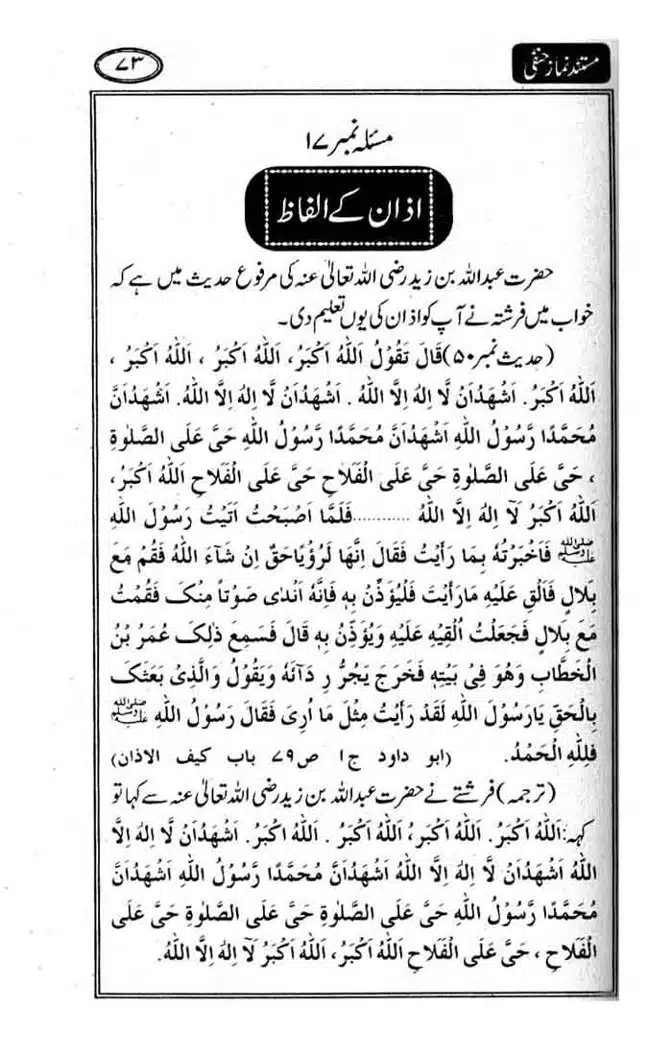 مستند نماز حنفی
۷۳
مسئلہ نمبر ۱۷
اذان کے الفاظ
حضرت عبداللہ بن زید رضی اللہ تعالیٰ عنہ کی مرفوع حدیث میں ہے کہ
خواب میں فرشتہ نے آپ کو اذان کی یوں تعلیم دی۔
(حدیث نمبر ۵۰) قَالَ تَقُوْلُ اَللّٰهُ اَكْبَرُ، اَللّٰهُ اَكْبَرُ ، اَللّٰهُ اَكْبَرُ ،
اَللّٰهُ اَكْبَرُ. اَشْهَدُاَنْ لَّا اِلٰهَ اِلَّا اللّٰهُ . اَشْهَدُاَنْ لَّا اِلٰهَ اِلَّا اللّٰهُ. اَشْهَدُاَنَّ
مُحَمَّدًا رَّسُوْلُ اللّٰهِ اَشْهَدُاَنَّ مُحَمَّدًا رَّسُوْلُ اللّٰهِ حَیَّ عَلَی الصَّلٰوةِ
، حَیَّ عَلَی الصَّلٰوةِ حَیَّ عَلَی الْفَلَاحِ حَیَّ عَلَی الْفَلَاحِ اَللّٰهُ اَكْبَرُ،
اَللّٰهُ اَكْبَرُ لَآ اِلٰهَ اِلَّا اللّٰهُ ............فَلَمَّا اَصْبَحْتُ اَتَيْتُ رَسُوْلَ اللّٰهِ
ﷺ فَاَخْبَرْتُهُ بِمَا رَأَيْتُ فَقَالَ اِنَّهَا لَرُؤْيَاحَقٌ اِنْ شَآءَ اللّٰهُ فَقُمْ مَعَ
بِلَالٍ فَاَلْقِ عَلَيْهِ مَارَأَيْتَ فَلْيُؤَذِّنْ بِهٖ فَاِنَّهُ اَنْدٰی صَوْتاً مِنْکَ فَقُمْتُ
مَعَ بِلَالٍ فَجَعَلْتُ اُلْقِيْهِ عَلَيْهِ وَيُؤَذِّنُ بِهٖ قَالَ فَسَمِعَ ذٰلِکَ عُمَرُ بْنُ
الْخَطَّابِ وَهُوَ فِیْ بَيْتِهٖ فَخَرَجَ يَجُرُّ رِدَآئَهُ وَيَقُوْلُ وَالَّذِیْ بَعَثَکَ
بِالْحَقِّ يَارَسُوْلَ اللّٰهِ لَقَدْ رَأَيْتُ مِثْلَ مَا اُرِیَ فَقَالَ رَسُوْلُ اللّٰهِ ﷺ
فَلِلّٰهِ الْحَمْدُ. (ابو داود ج۱ ص۷۹ باب کیف الاذان)
(ترجمہ) فرشتے نے حضرت عبداللہ بن زید رضی اللہ تعالیٰ عنہ سے کہا تو
کہہ: اَللّٰهُ اَكْبَرُ. اَللّٰهُ اَكْبَرُ، اَللّٰهُ اَكْبَرُ . اَللّٰهُ اَكْبَرُ. اَشْهَدُاَنْ لَّا اِلٰهَ اِلَّا
اللّٰهُ اَشْهَدُاَنْ لَّا اِلٰهَ اِلَّا اللّٰهُ اَشْهَدُاَنَّ مُحَمَّدًا رَّسُوْلُ اللّٰهِ اَشْهَدُاَنَّ
مُحَمَّدًا رَّسُوْلُ اللّٰهِ حَیَّ عَلَی الصَّلٰوةِ حَیَّ عَلَی الصَّلٰوةِ حَیَّ عَلَی
الْفَلَاحِ ، حَیَّ عَلَی الْفَلَاحِ اَللّٰهُ اَكْبَرُ، اَللّٰهُ اَكْبَرُ لَآ اِلٰهَ اِلَّا اللّٰهُ.